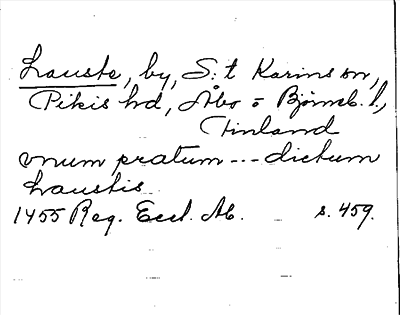 Lauste, by, S:t Karins sn,
Pikis hd, Åbo o Björneb. l.,
Finland
unum pratum --- dictum
Laustis
1455 Reg. Eccl. Ab. s. 459.